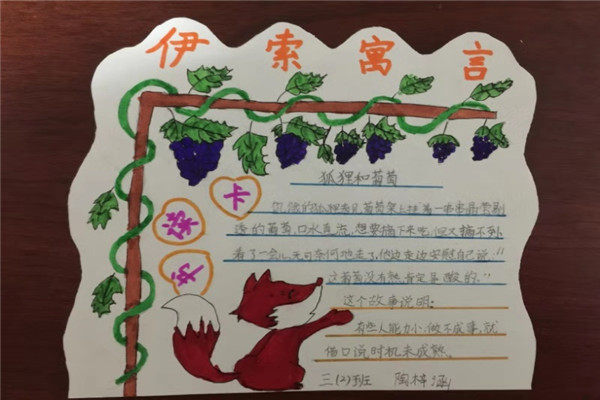 伊索寓言
狐狸和葡萄
读书卡
饥饿的狐狸看见葡萄架上挂着一串串晶莹剔
透的葡萄,口水直流,想要摘下来吃,但又摘不到。
看了一会儿,无可奈何地走了,他边走边安慰自己说:"
这葡萄没有熟,肯定是酸的。"
这个故事说明:
有些人能力小,做不成事,就
借口说时机未成熟。
三(2)班 陶梓涵